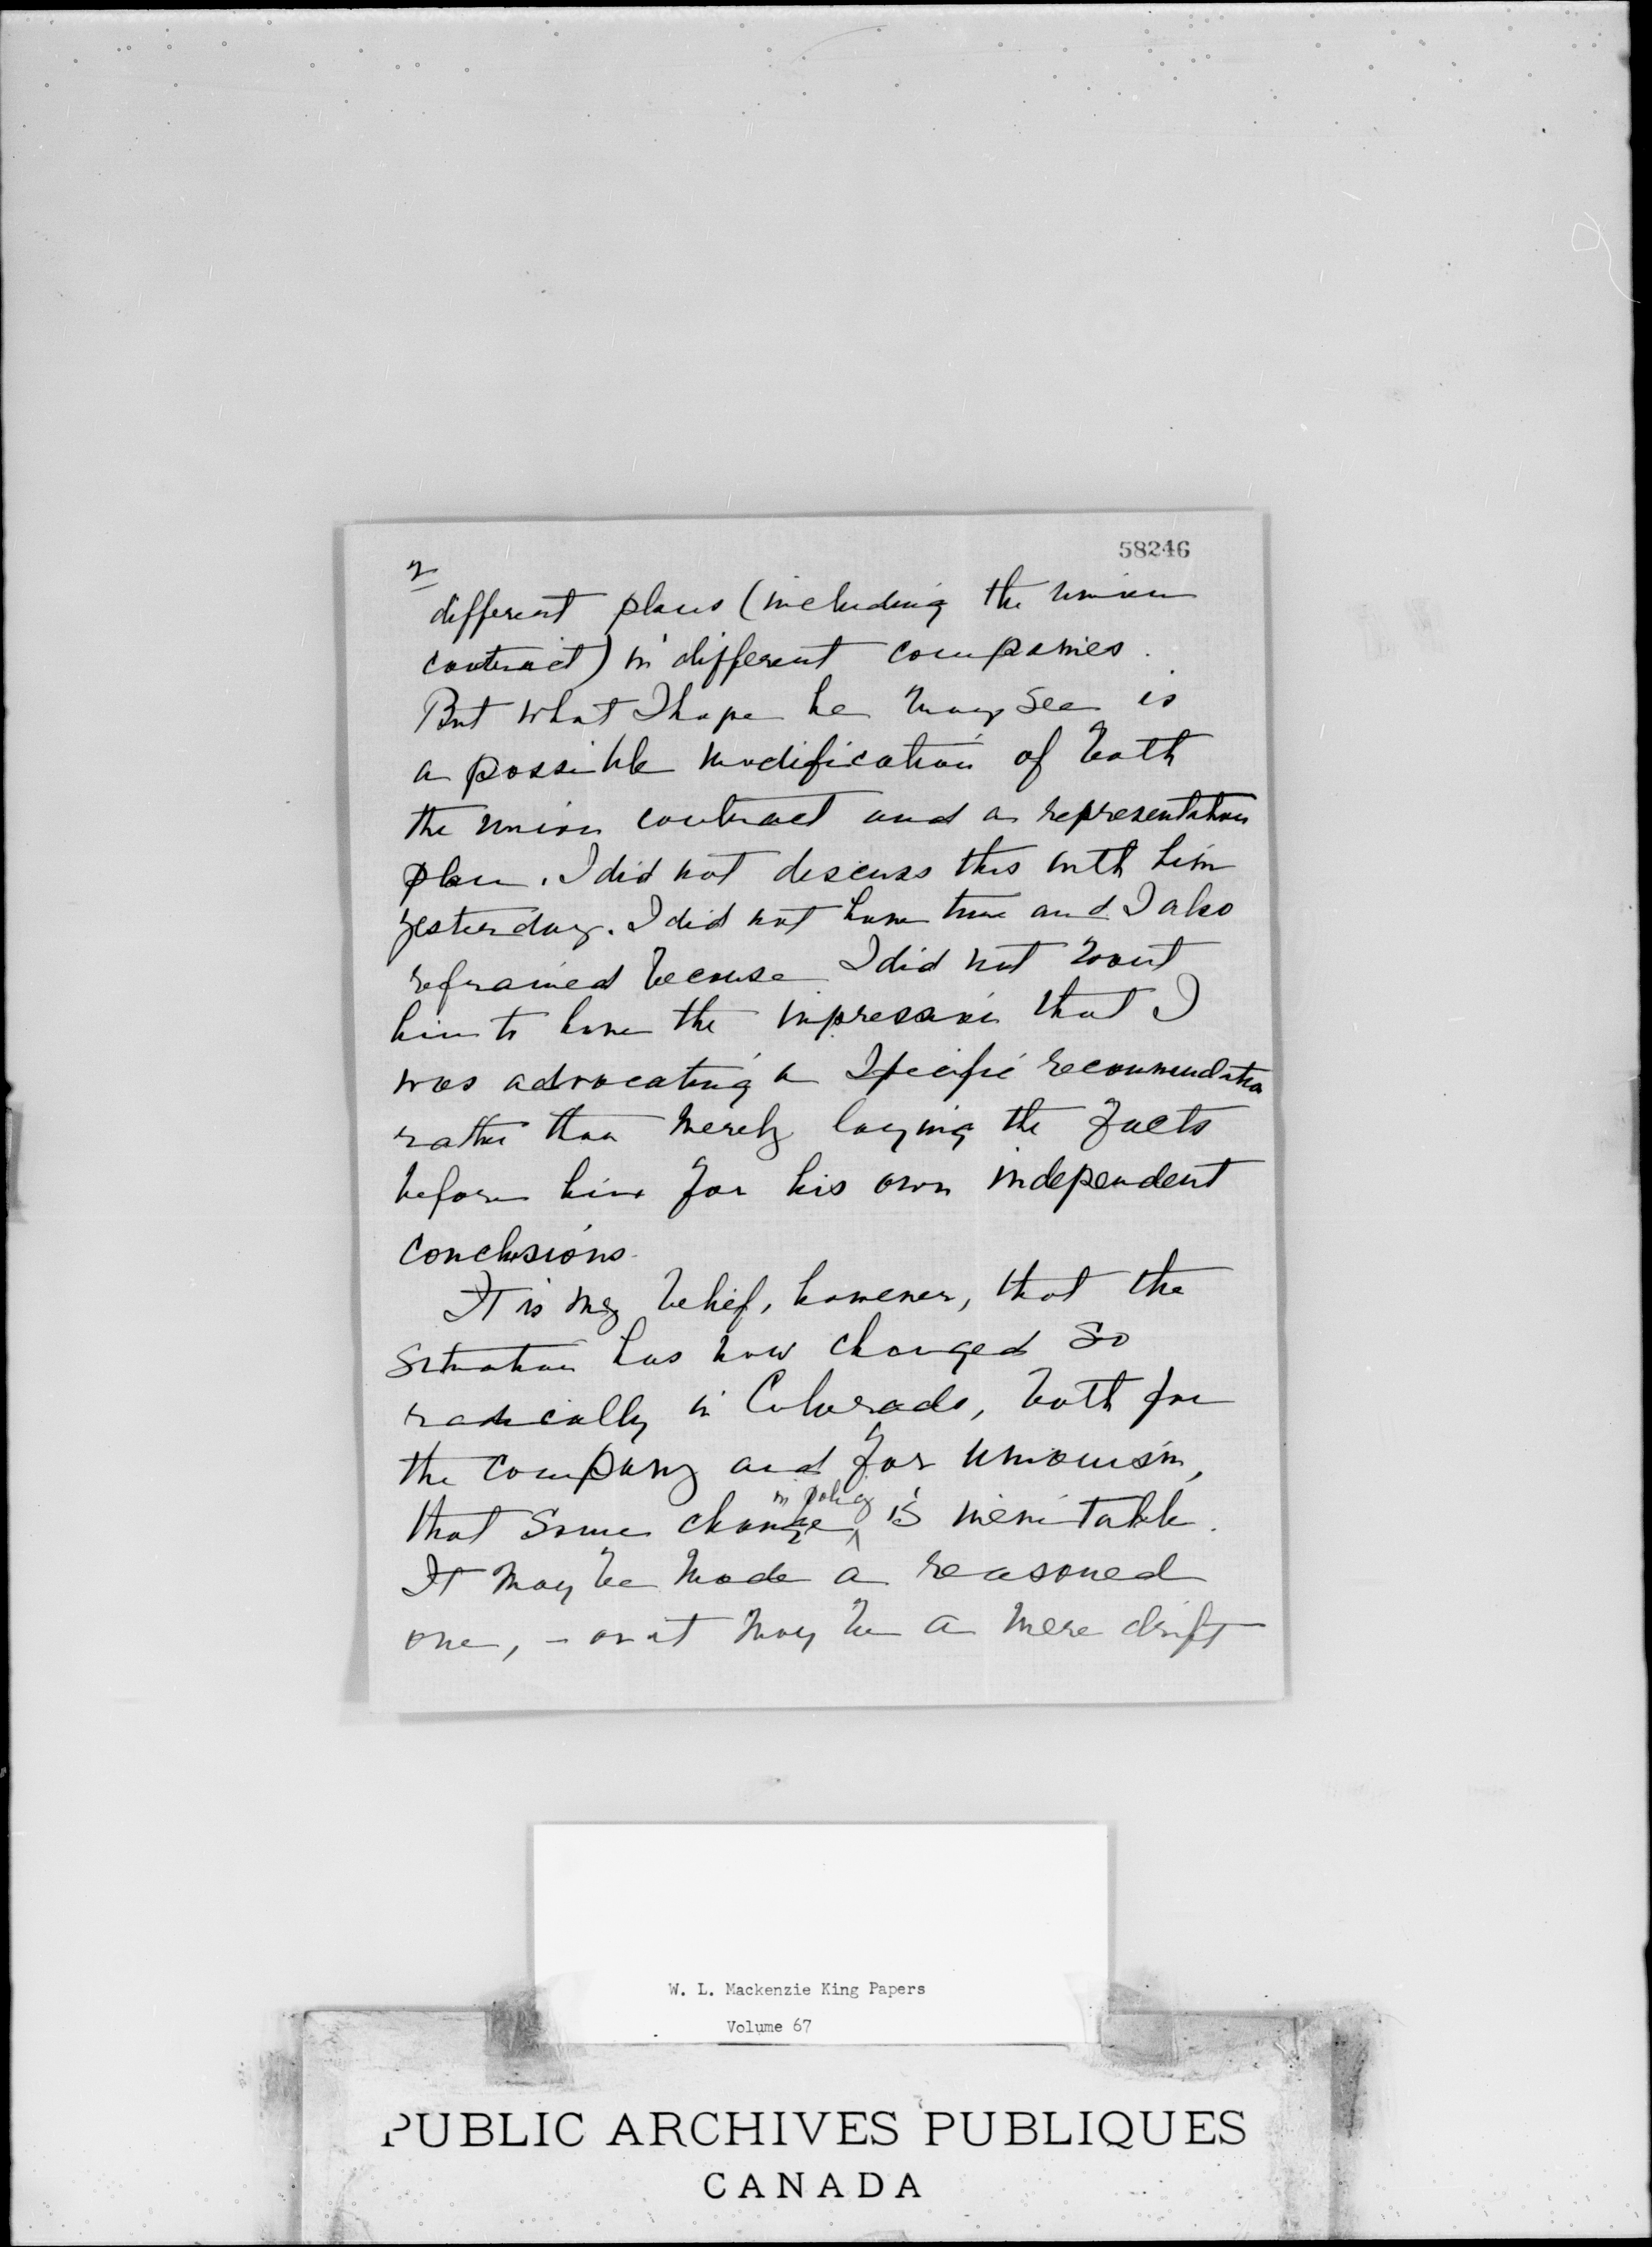 58246
2
different plans (including the union
contract) in different companies.
But what I hope he may see is
a possible modification of both
the union contract and a representation
plan. I did not discuss this with him
yesterday. I did not have time and I also
refrained because I did not want
him to have the impression that I
was advocating a specific recommendation
rather than merely laying the facts
before him for his own independent
conclusions.
It is my belief, however, that the
situation has now changed so
radically in Colorado, both for
the company and for unionism,
in policy
that some change ^ is inevitable.
It may be made a reasoned
one, - or it may be a mere drift
W. L. Mackenzie King Papers
Volume 67
PUBLIC ARCHIVES PUBLIQUES
CANADA